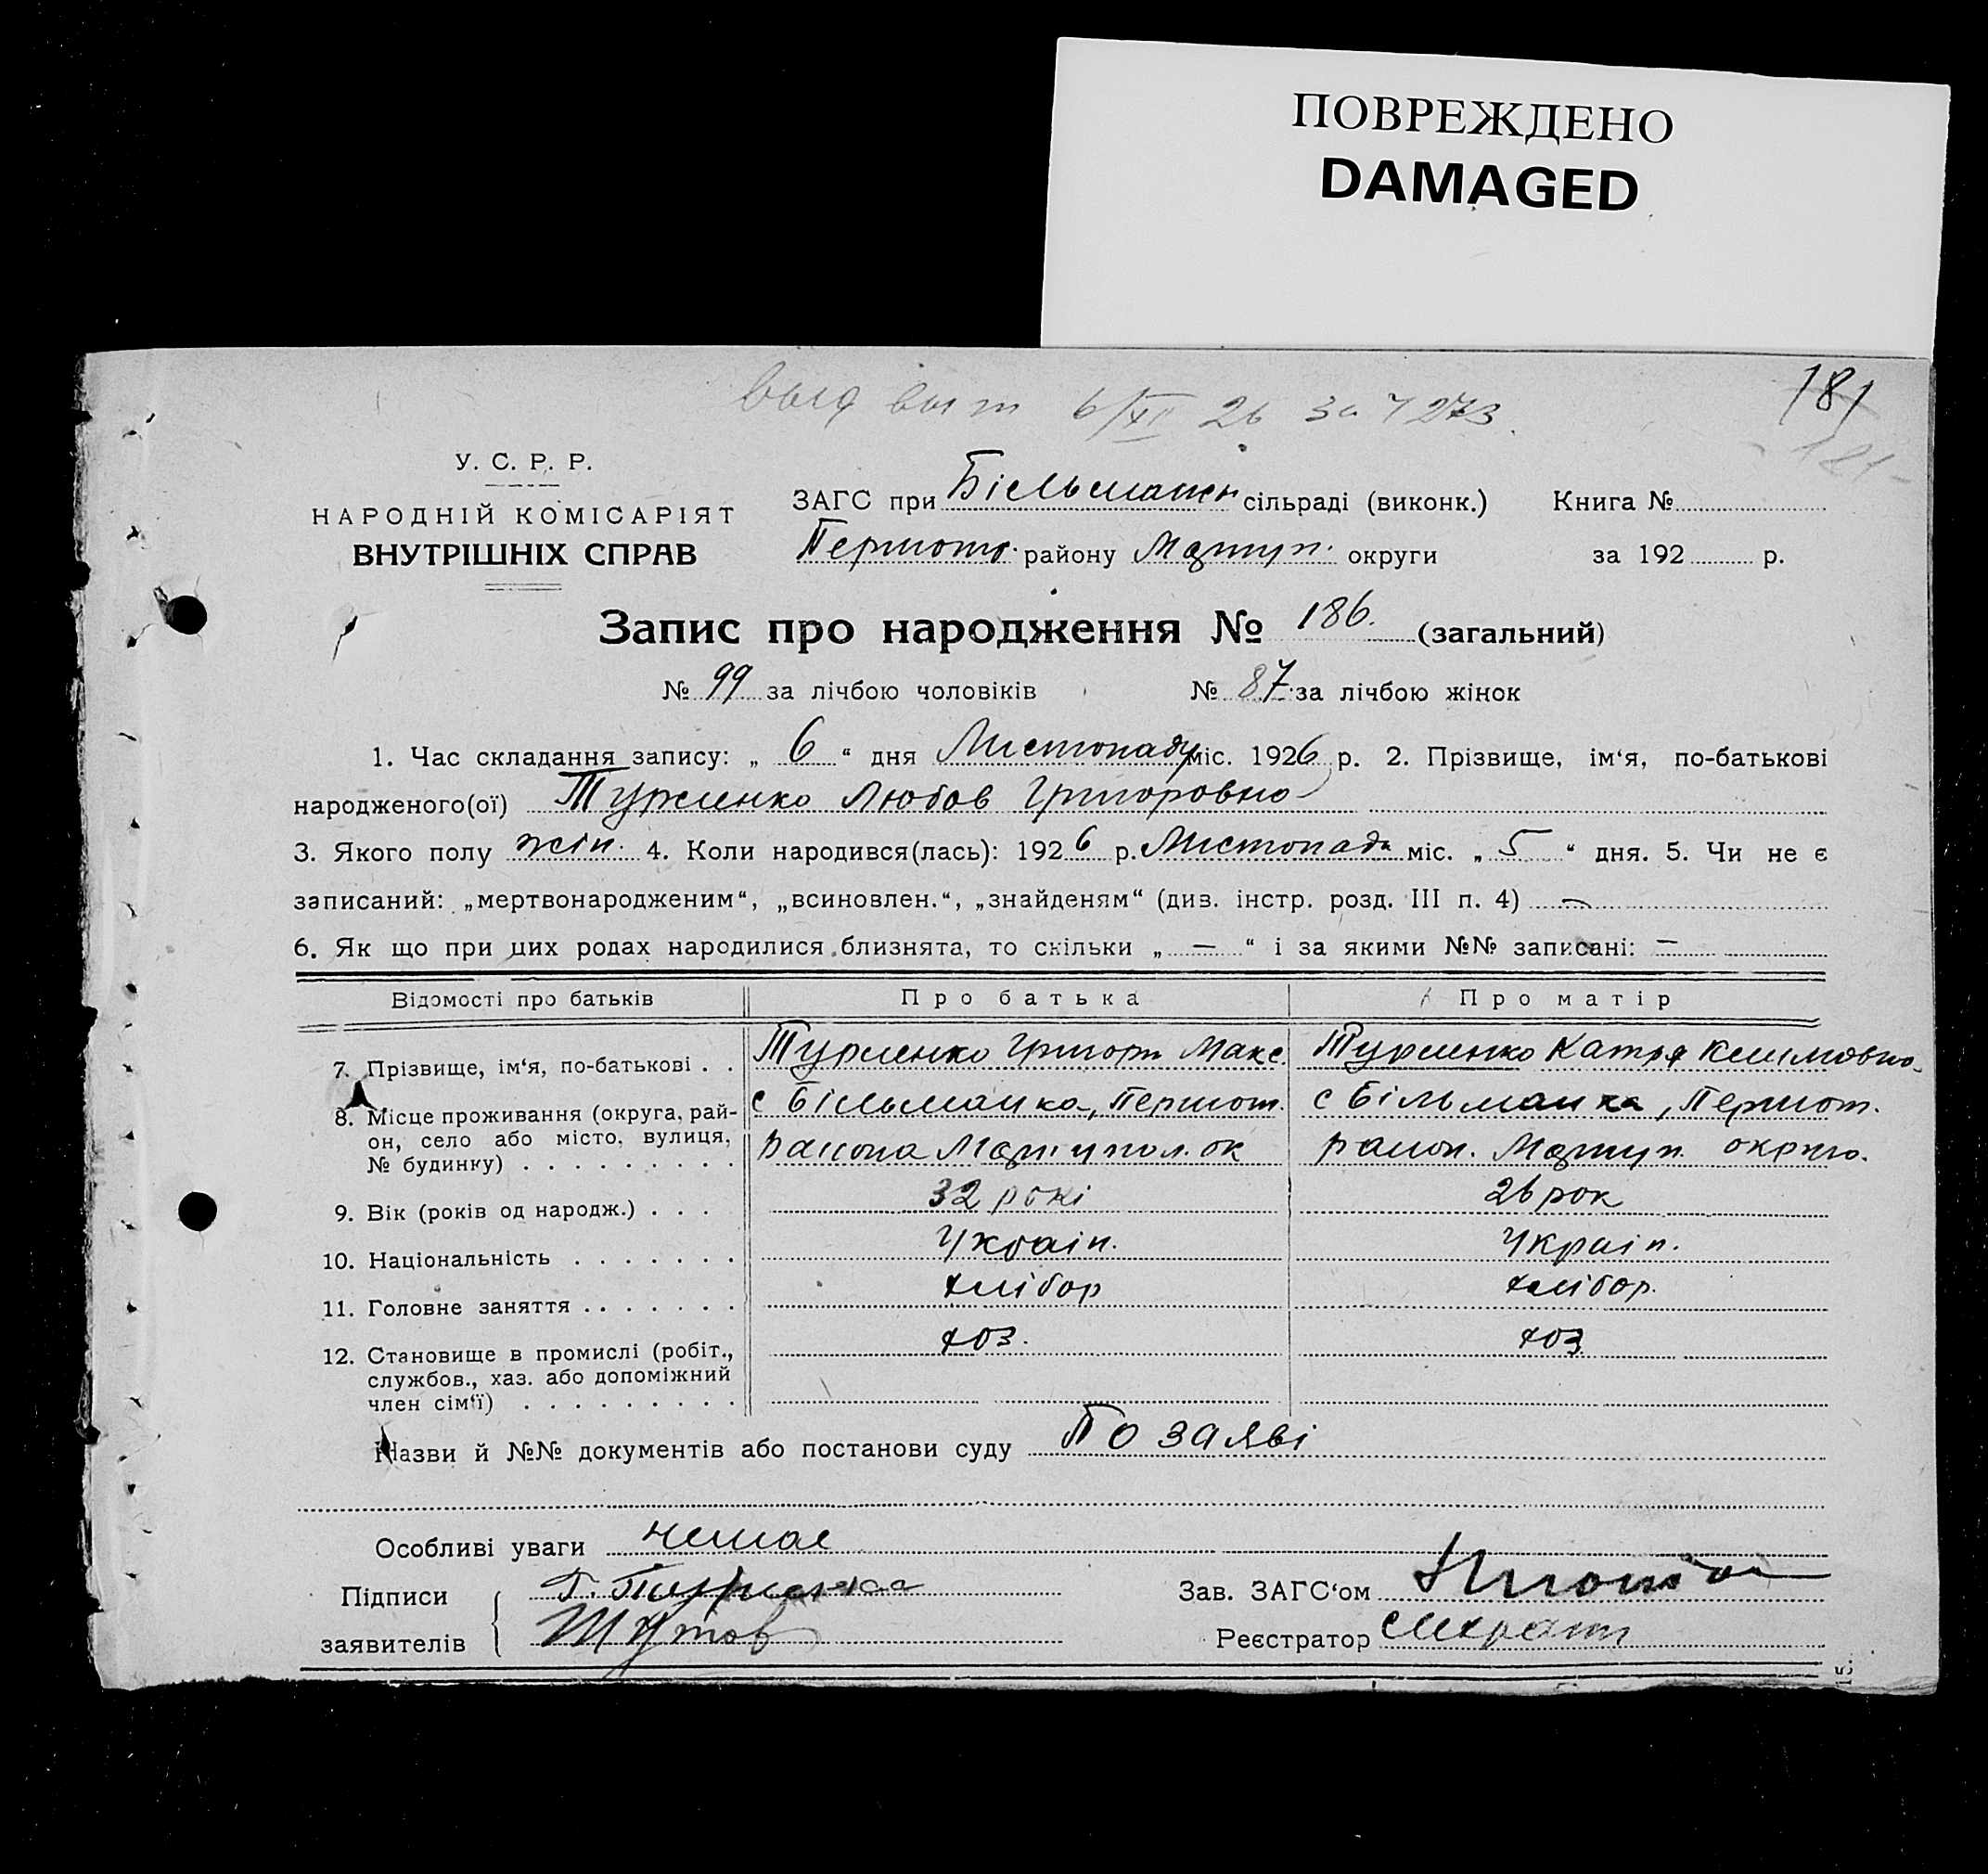 ПОВРЕЖДЕНО
DAMAGED
181
выд вып 6/XI 26 За 4273
181
У. С. Р. Р.
НАРОДНІЙ КОМІСАРІЯТ
ВНУТРІШНІХ СПРАВ
ЗАГС при Більманськ сільраді (виконк.) Книга №
Першотр. району Маріуп. округи за 192 р.
Запис про народження № 186. (загальний)
№ 99 за лічбою чоловіків № 87. за лічбою жінок
1. Час складання запису: „ 6 “ дня Листопаду міс. 1926 р. 2. Прізвище, ім‘я, по-батькові
народженого(ої) Турженко Любов Григоровно
3. Якого полу жін. 4. Коли народився(лась): 1926 р. Листопада міс. „ 5 “ дня. 5. Чи не є
записаний: „мертвонародженим“, „всиновлен.“, „знайденям“ (див. інстр. розд. III п. 4) —
6. Як що при цих родах народилися близнята, то скільки „ — “ і за якими №№ записані: —
Відомості про батьків Про батька Про матір
7. Прізвище, ім‘я, по-батькові . . Турженко Григорі Макс. Турженко Катря Климовно
8. Місце проживання (округа, рай- с Більманка, Першот. с Більманка, Першот.
он, село або місто, вулиця, района Маріупол. ок район. Маріуп. округо.
№ будинку) . . . . . . . . .
9. Вік (років од народж.) . . . . 32 рокі 26 рок
10. Національність . . . . . . . Україн. Україн.
11. Головне заняття . . . . . . . хлібор хлібор.
12. Становище в промислі (робіт., хоз. хоз
службов., хаз. або допоміжний
член сім‘ї) . . . . . . . . .
Назви й №№ документів або постанови суду По заяві
Особливі уваги немає
Підписи Г. Зав. ЗАГС‘ом
заявителів Шутов Реєстратор
15.